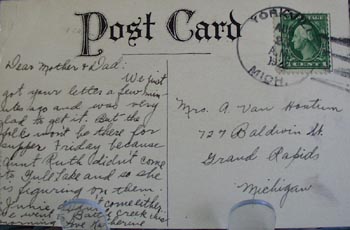 Post Card
YORKVI
MICH.
1 CENT 1
Dear Mother & Dad:
We just
got your letter a few min-
utes ago and was very
glad to get it. But the
folks won't be there for
supper Friday because
Aunt Ruth didn't come
to Gull Lake and so she
is figuring on them.
Junie didn't come either.
We went to Battle Creek this
morning Love Katherine
Mrs. A. Van Houtum
727 Baldwin St.
Grand Rapids
Michigan